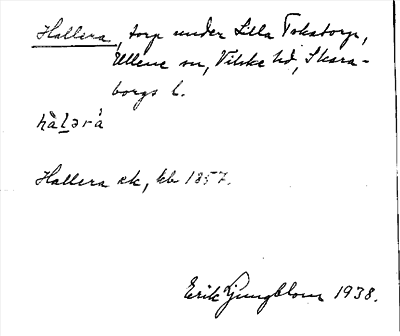 Hallera, torp under Lilla Tokatorp,
Ullene sn, Vilske hd, Skara-
borgs l.
hàl̠ərá
Hallera sk, kb 1857.
Erik Ljungblom 1938.